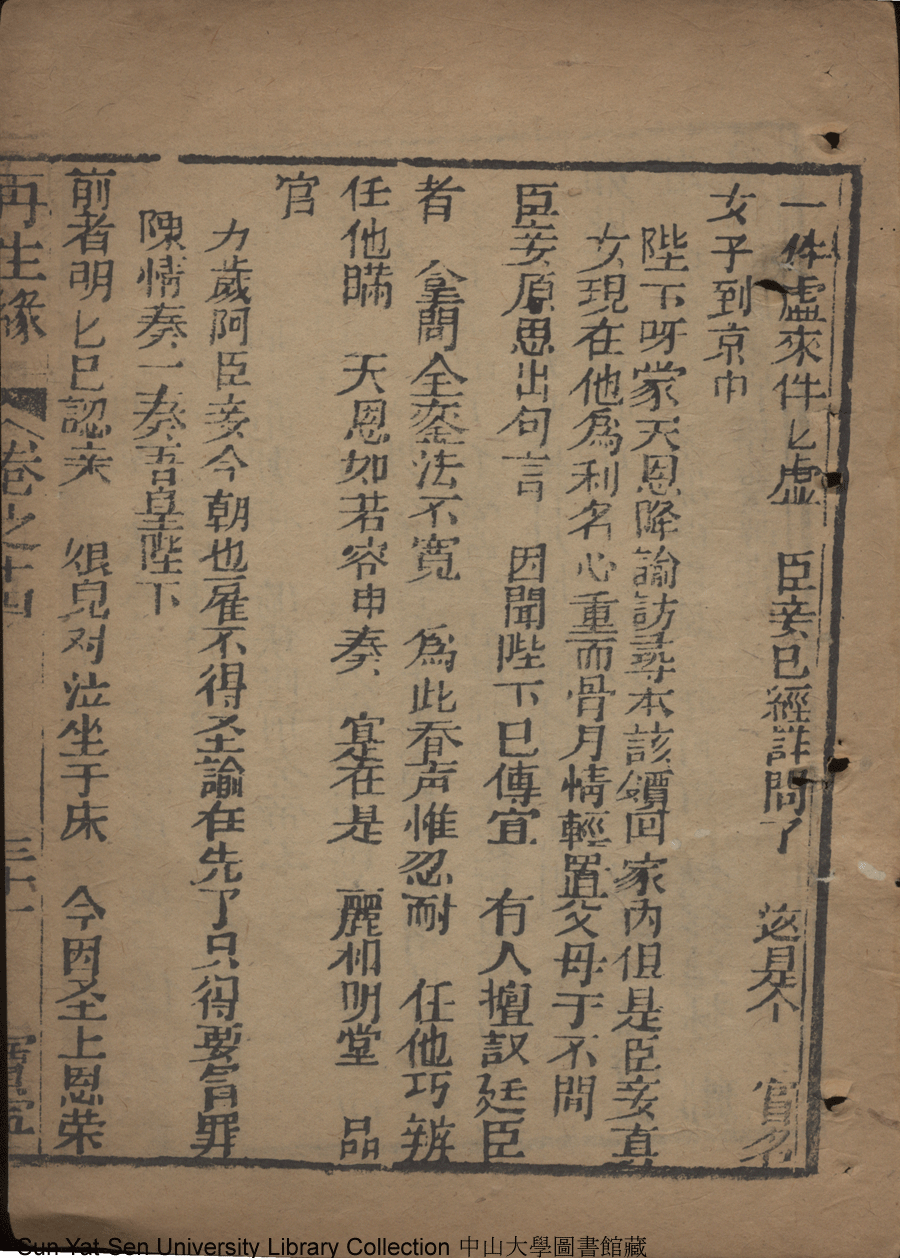 一件虛來件匕虛　臣妾已經詳問了　这是个　冒名
女子到京巾
陛下呀蒙天恩降諭訪尋本該續回家內但是臣妾真
女現在他爲利名心重而骨月情輕置父母于不問
臣妾原思出句言　因聞陛下已傳宣　有人擅訟廷臣
者　拿問全鑾法不寬　爲此吞声惟忍耐　任他巧辨
任他瞞　天恩如若容申奏　寔在是　麗相明堂　品
官
力歲阿臣妾今朝也雇不得圣諭在先了只得要冐罪
陳情奏一奏吾皇陛下
前者明匕已認兲　狠皃对泣坐于床　今因圣上恩荣
再生緣　卷之十四　三十一　寶寧
Sun Yat Sen University Library Collection 中山大學圖書館藏